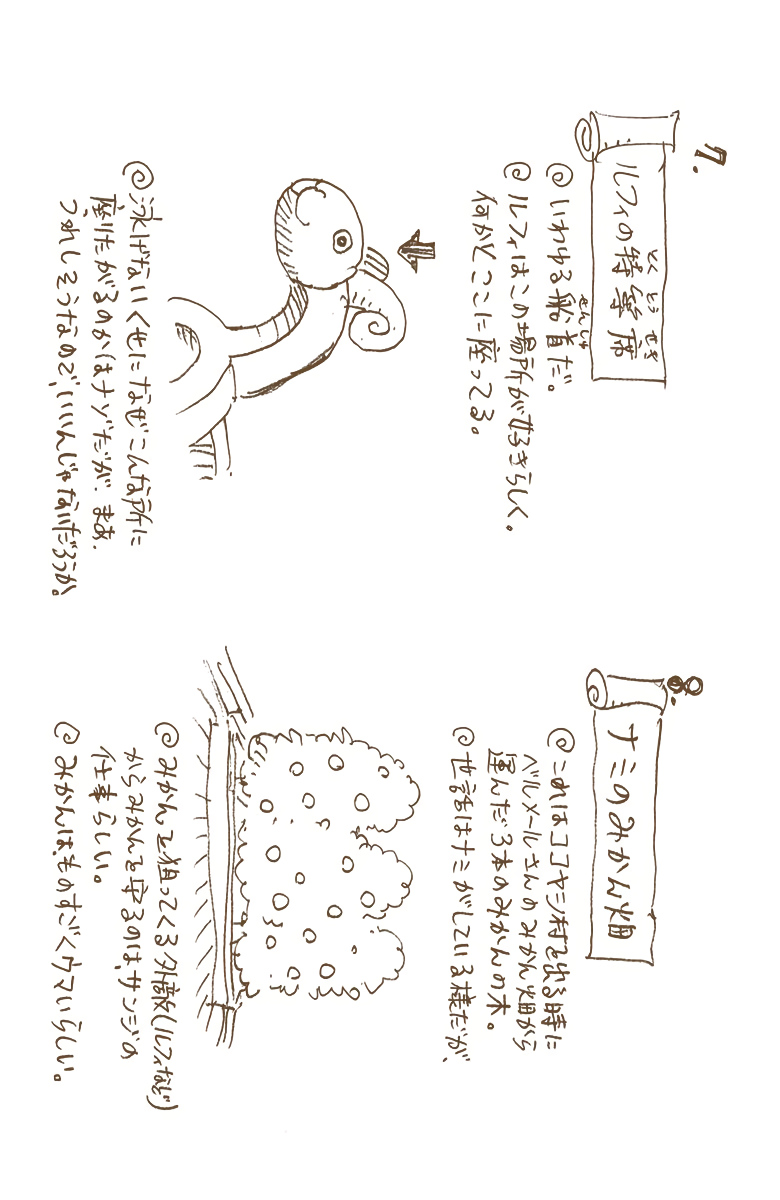 7.
ルフィの特等席
とくとうせき
◎いわゆる船首だ。
せんしゅ
◎ルフィはこの場所が好きらしく、
何かとここに座ってる。
◎泳げないくせになぜこんな所に
座りたがるのかはナゾだが、まあ、
うれしそうなので、いいんじゃないだろうか。
8.
ナミのみかん畑
◎これはココヤシ村を出る時に
ベルメールさんのみかん畑から
運んだ3本のみかんの木。
◎世話はナミがしている様だが、
◎みかんを狙ってくる外敵(ルフィなど)
からみかんを守るのは、サンジの
仕事らしい。
◎みかんは、ものすごくウマいらしい。